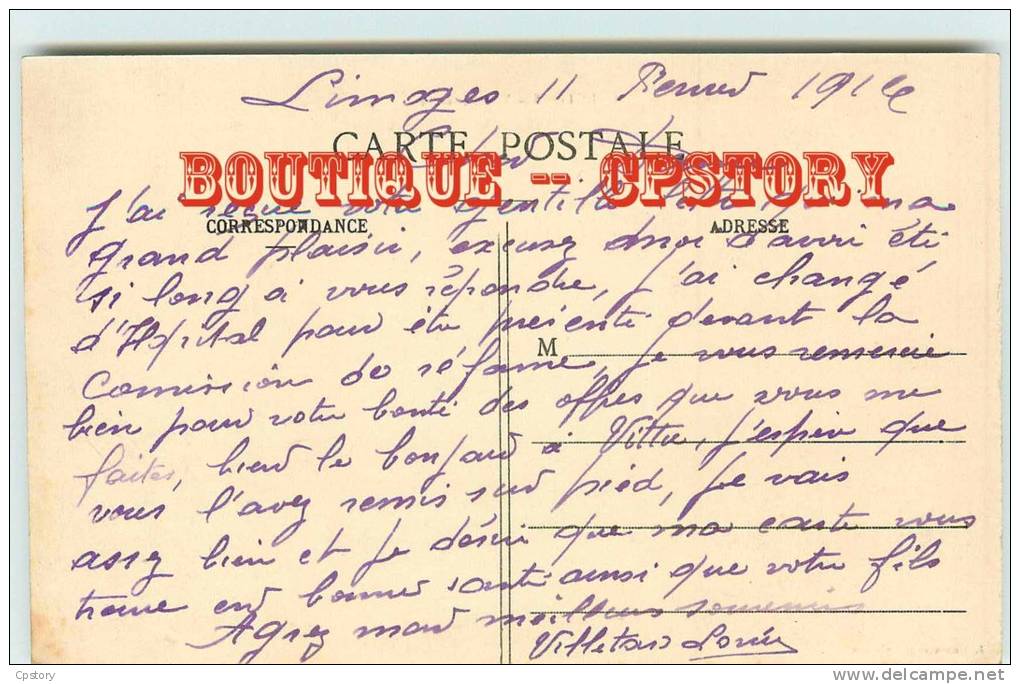 Limoges 11 1916
CARTE POSTALE
BOUTIQUE -- CPSTORY
J'ai reçue votre gentille ma
CORRESPONDANCE ADRESSE
grand plaisir, excusez moi d'avoir été
si long a vous répondre, j'ai changé
d'Hopital pour être présenté devant la
M
Comission de réfome, Je vous remercie
bien pour votre bonté des offres que vous me
faites, bien le bonjour à Vittre, j'espère que
vous l'avez remis sur pied, Je vais
assez bien et je désire que ma carte vous
trouve en bonne santé ainsi que votre fils
Agrez mes meilleurs souvenirs
Villetard
Cpstory
delcampe.net